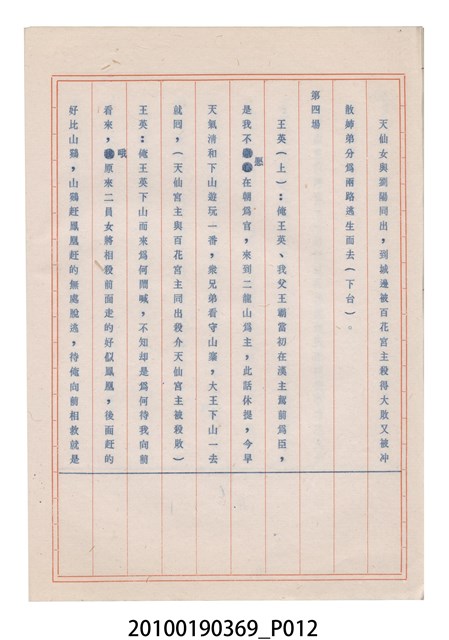 天仙女與劉陽同出，到城邊被百花宮主殺得大敗又被冲
散姉弟分為兩路逃生而去（下台）。
第四場
王英（上）：俺王英、我父王霸當初在漢主駕前為臣，
是我不愿在朝為官，來到二龍山為主，此話休提，今早
天氣清和下山遊玩一番，衆兄弟看守山寨，大王下山一去
就囘，（天仙宮主與百花宮主同出殺介天仙宮主被殺敗）
王英：俺王英下山而來為何閙喊，不知却是為何待我向前
看來，哦原來二員女將相殺前面走的好似鳳凰，後面赶的
好比山鷄，山鷄赶鳳凰赶的無處脫逃，待俺向前相救就是
20100190369_P012